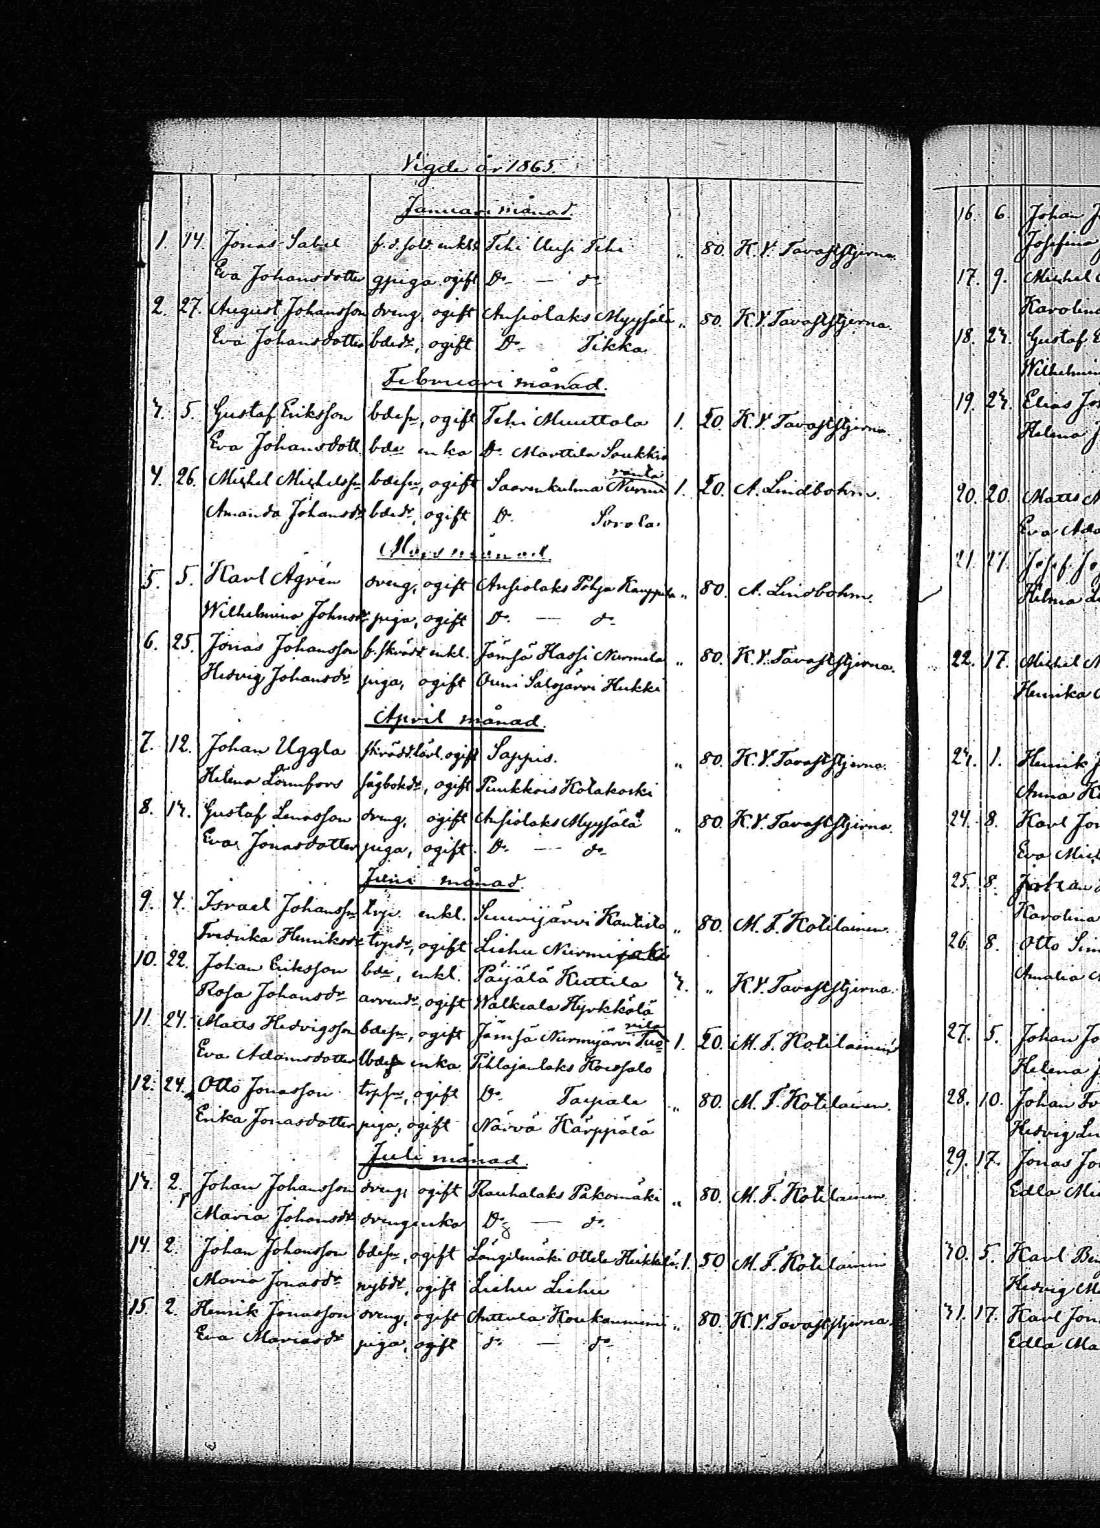 Vigde år 1865.
Januari månad.
1. 14. Jonas Sabel f.d. sold. enkl. Tehi Uusi Tehi „ 80. K. V. Tavaststjerna.
Eva Johansdotter gpiga ogift Do — do
2. 27. August Johansson dreng, ogift Ansiolaks Myyjälä „ 80. K V. Tavaststjerna.
Eva Johansdotter bdedr, ogift Do Tikka
Februari månad.
3. 5. Gustaf Eriksson bdesn, ogift Tehi Muuttola 1. 20. K. V. Tavaststjerna.
Eva Johansdott. bde enka Do Marttila Soukkio
ranta
4. 26. Mickel Mickelss. bdesn, ogift Saarenkulma Nurmi 1. 20. A. Lindbohm.
Amanda Johansdr bdedr, ogift Do Sorola
Mars månad.
5. 5. Karl Agrén dreng, ogift Ansiolaks Pohja Kauppila „ 80. A. Lindbohm.
Wilhelmina Johnsdr piga, ogift Do — do
6. 25. Jonas Johansson f. skrädd. enkl. Jämsä Hassi Nurmela „ 80. K. V. Tavaststjerna.
Hedvig Johansdr piga, ogift Ouni Salojärvi Hukki
April månad.
7. 12. Johan Uggla skrädd.lärl. ogift Sappis. „ 80. K. V. Tavaststjerna.
Helena Lönnfors ogift Punkkois Kolakoski
8. 13. Gustaf Lenasson dreng, ogift Ansiolaks Myyjälä „ 80. K. V. Tavaststjerna.
Eva Jonasdotter piga, ogift Do — do
Juni månad.
9. 4. Israel Johansson torp. enkl. Suurijärvi Kantola „ 80. M. F. Kotilainen.
Fredrika Henriksdr torpdr, ogift Liehu Nurmijoki
10. 22. Johan Eriksson bde, enkl. Päijälä Kuttila 3. „ K. V. Tavaststjerna.
Rosa Johansdr arrend, ogift Walkeala Hyrkkölä
11. 24. Matts Hedvigsson bdesn, ogift Jämsä Nurmijärvi Tuo- 1. 20. M. F. Kotilainen
vila
Eva Adamsdotter bde enka Pihlajanlaks Hoessalo
12. 24. Otto Jonasson torpsn, ogift Do Taipale „ 80. M. F. Kotilainen.
Erika Jonasdotter piga, ogift Närvä Kärppälä
Juli månad.
13. 2. Johan Johansson dreng, ogift Rauhalaks Pakomäki „ 80. M. F. Kotilainen
Maria Johansdr drengenka Do — do
14. 2. Johan Johansson bdesn, ogift Längilmäki Ottila Heikkilä 1. 50 M. F. Kotilainen
Maria Jonasdr nybdr, ogift Liehu Liehu
15. 2. Henrik Jonasson dreng, ogift Anttula Koukanniemi „ 80. K. V. Tavaststjerna.
Eva Mariasdr piga, ogift do — do
16. 6. Johan J
Josefina
17. 9. Mickel
Karolina
18. 23. Gustaf E
Wilhelmin
19. 23. Elias Jo
Helena J
20. 20. Matts
Eva Ada
21. 27. Josef Jo
Helma L
22. 17. Mickel
Henrika
23. 1. Henrik J
Anna K
24. 8. Karl Jon
Eva Mick
25. 8. Johan
Karolina
26. 8. Otto Sim
Amalia
27. 5. Johan Jo
Helena J
28. 10. Johan
Hedvig Lu
29. 17. Jonas Jo
Edla Mi
30. 5. Karl Ben
Hedvig M
31. 17. Karl Jon
Edla Ma